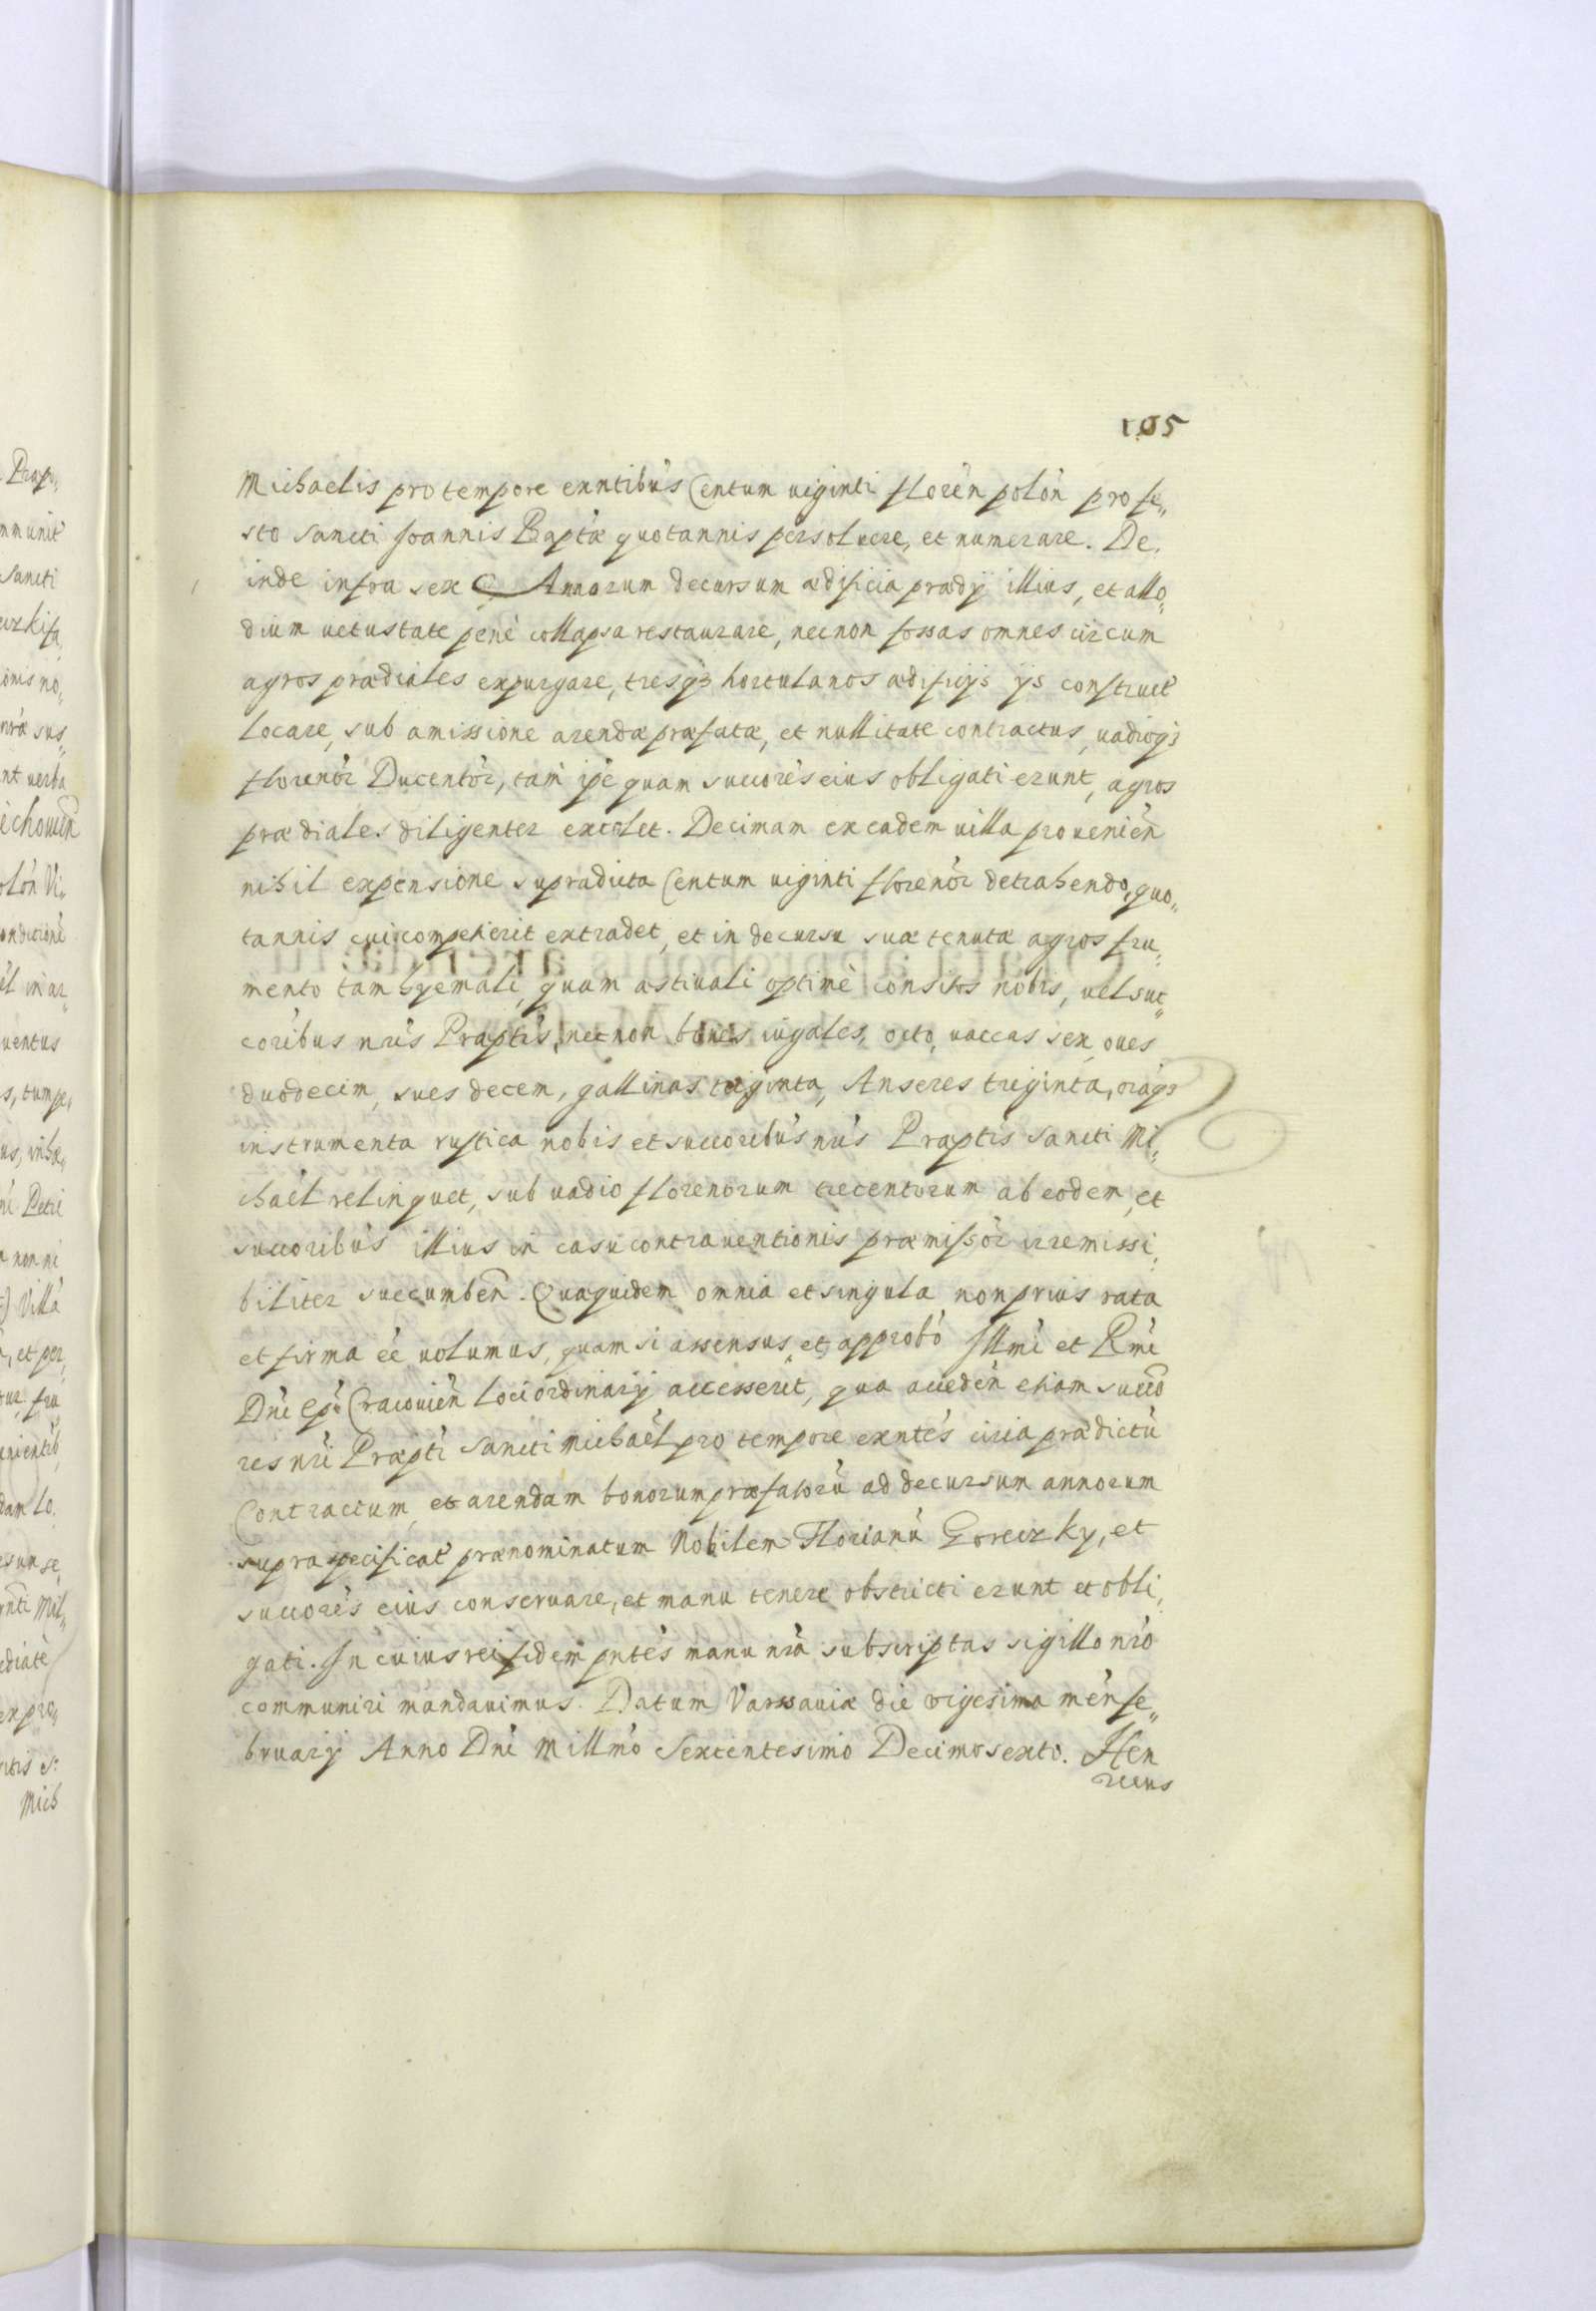 105
Michaelis pro tempore exntibus Centum uiginti floren polon pro fe„
sto Sancti Joannis Baptæ quotannis persoluere, et numerare. De„
inde infra sex Annorum decursum ædificia prædij illius, et allo„
dium uetustate penè collapsa restaurare, necnon fossas omnes circum
agros prædiales expurgare, tresq3 hortulanos ædificijs ijs construct
locare, sub amissione arendæ præfatæ, et nullitate contractus, uadioq3
florenor Ducentor, tam ipe quam succores eius obligati erunt, agros
prædiales diligenter excolet. Decimam ex eadem uilla prouenien
nihil expensione supradicta Centum uiginti florenor detrahendo, quo„
tannis cui competierit extradet, et in decursu suæ tenutæ agros fru„
mento tam hyemali, quam æstiuali optimè consitos nobis, uel suc„
coribus nris Præptis, necnon boues iugales, octo, uaccas sex, oues
duodecim, sues decem, gallinas triginta, Anseres triginta, oiaq3
instrumenta rustica nobis et succoribus nris Præptis Sancti Mi„
chaèl relinquet, sub uadio florenorum trecentorum ab eodem, et
succoribus illius in casu contrauentionis præmissor irremissi„
biliter succumben. Quæquidem omnia et singula non prius rata
et firma èe uolumus, quam si assensus et approbò Illmi et Rmi
Dni Epi Cracouien Loci ordinarij accesserit, qua acceden etiam succo
res nri Præpti Sancti Michaèl pro tempore exntes circa prædictu
Contractum, et arendam bonorum præfatoru ad decursum annorum
supraspecificat prænominatum Nobilem Florianu Goreczky, et
succores eius conseruare, et manu tenere obstricti erunt et obli„
gati. In cuius rei fidem pntes manu nra subscriptas sigillo nro
communiri mandauimus. Datum Varssauiæ die vigesima mens Fe„
bruarij Anno Dni Millmo Sexcentesimo Decimosexto. Hen
ricus